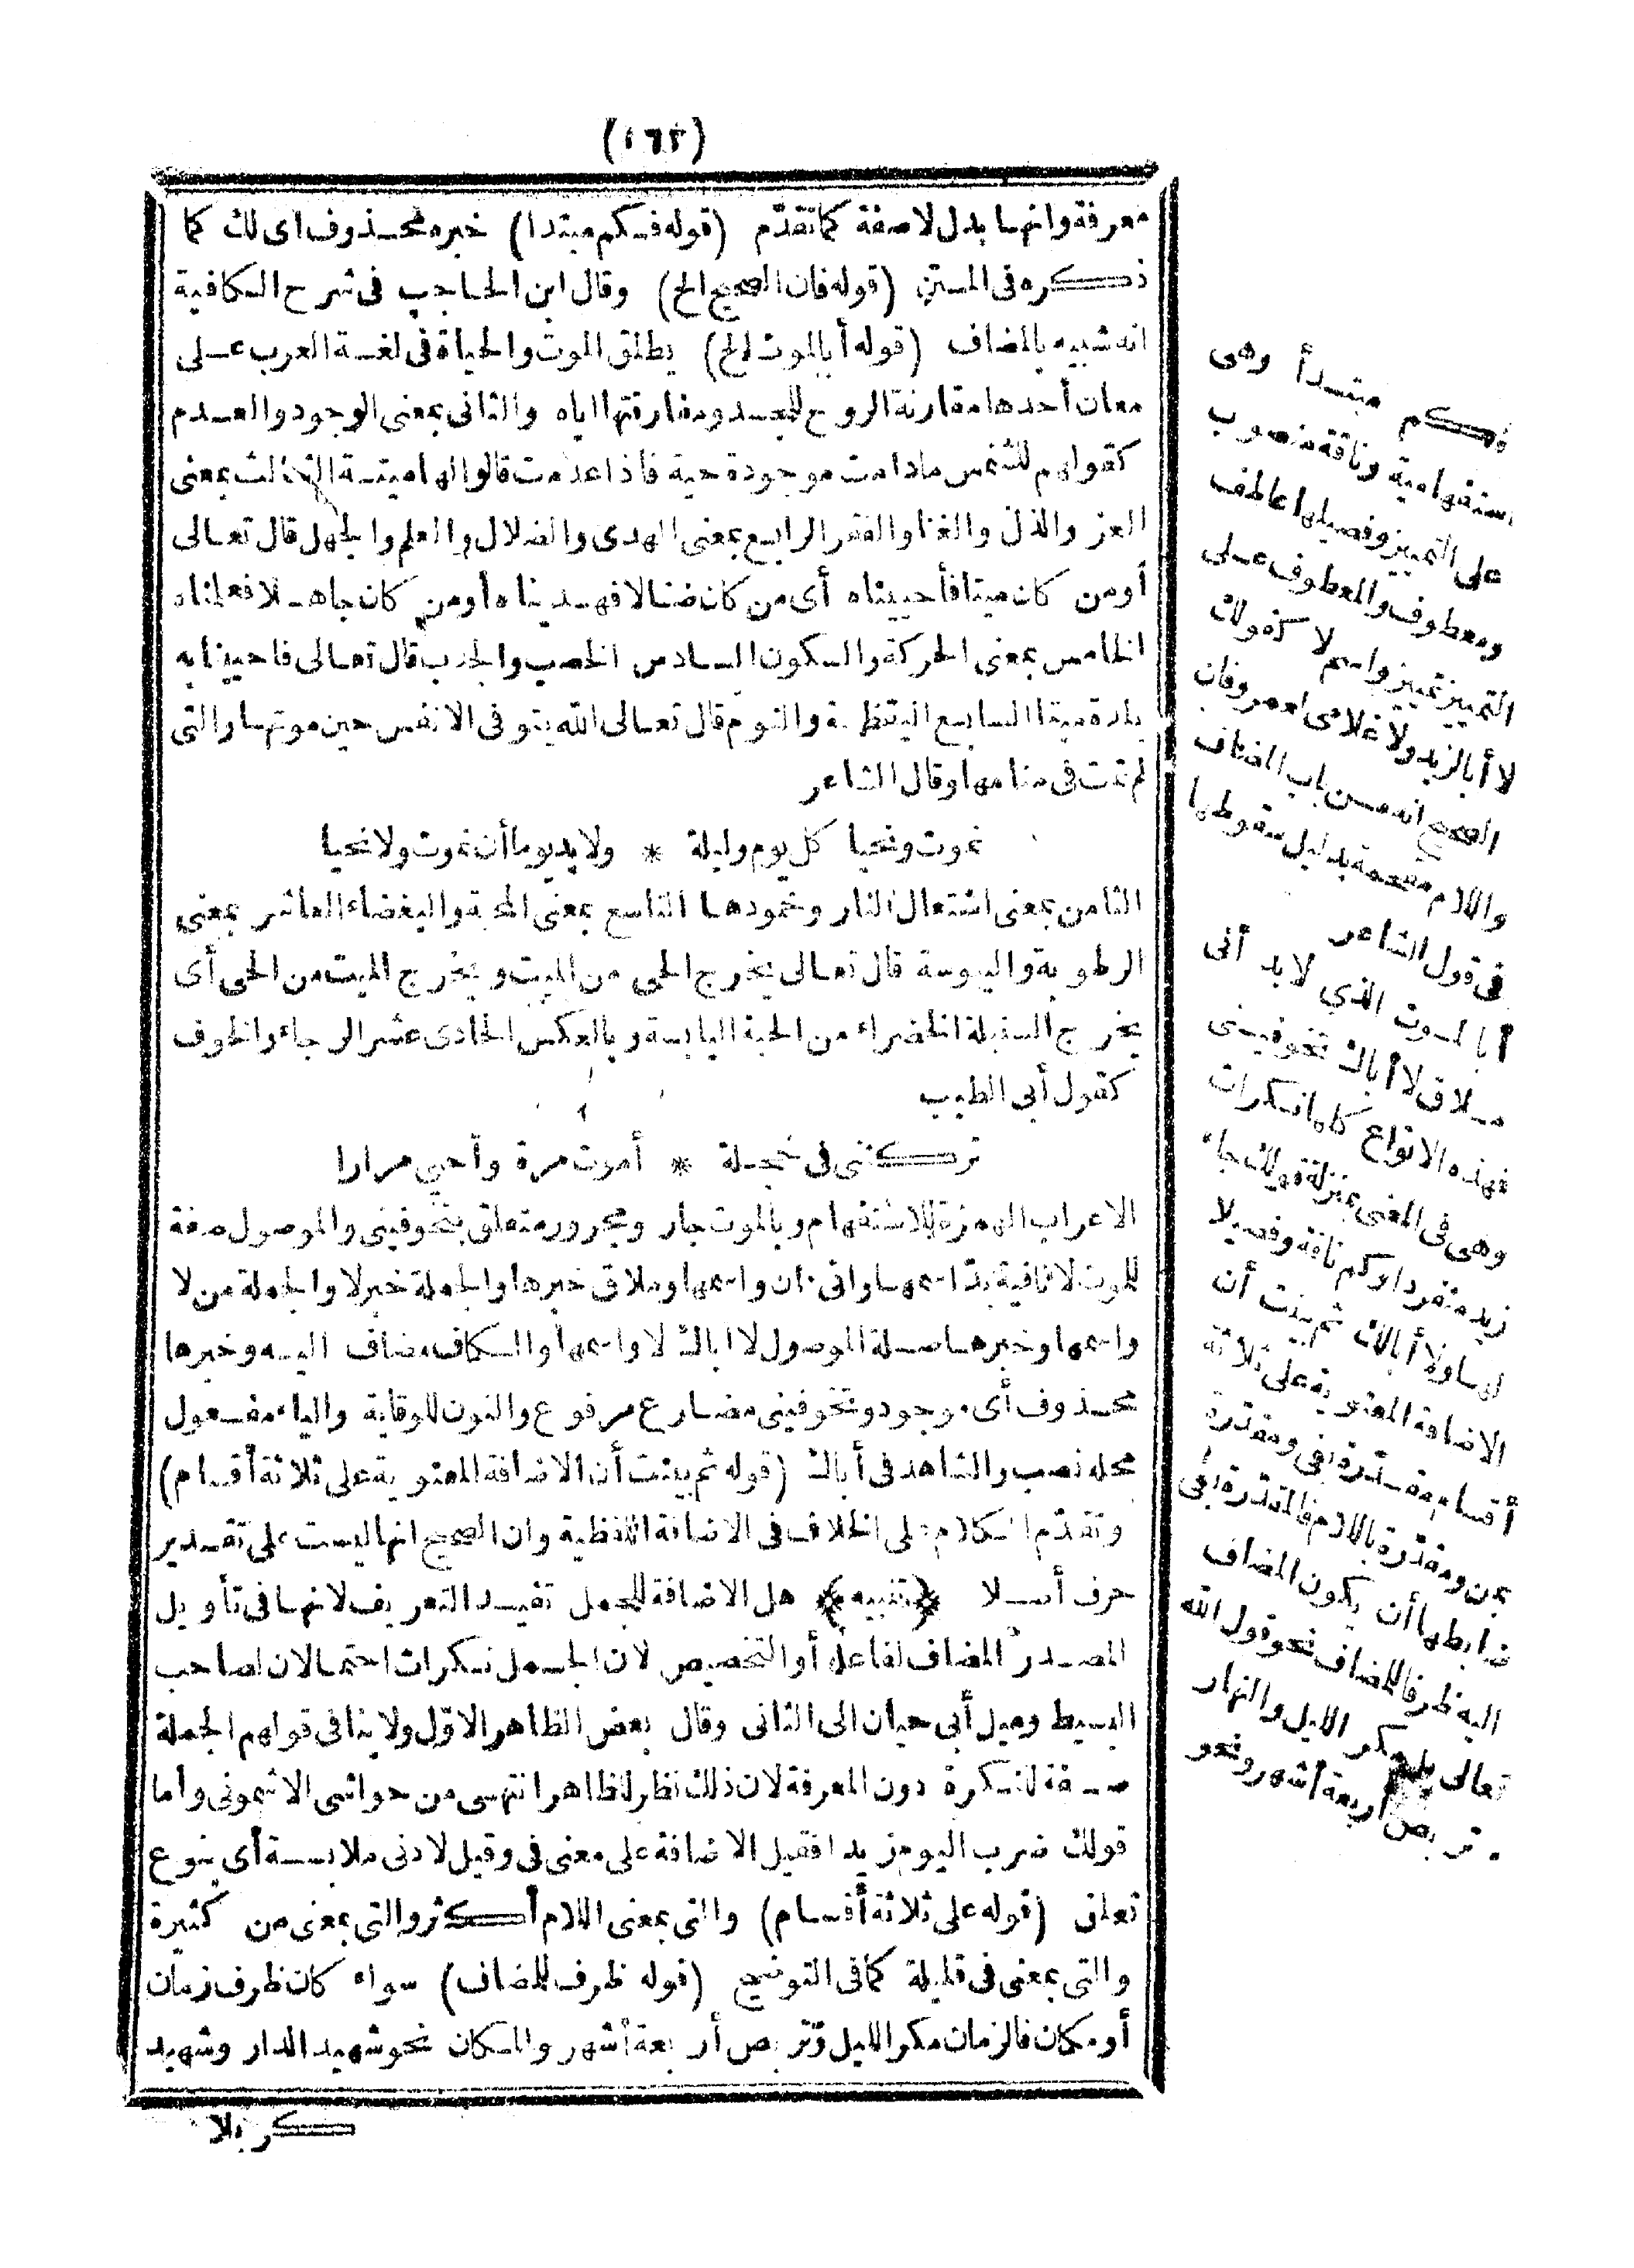 (١٦٢)
معرفة وانها بدل لا صفة كما تقدّم (قوله فكم مبتدا) خبره محذوف اى لك كما
ذكره فى المتن (قوله فان الصحيح الخ) وقال ابن الحاجب فى شرح الكافية
انه شبيه بالمضاف (قوله أبالموت الخ) يطلق الموت والحياة فى لغة العرب على
معان أحدها مقارنة الروح للجسد ومفارقتها اياه والثانى بمعنى الوجود والعدم
كقولهم للشمس مادامت موجودة حية فاذا عدمت قالوا لها ميتة الثالث بمعنى
العز والذل والغنا والفقر الرابع بمعنى الهدى والضلال والعلم والجهل قال تعالى
أومن كان ميتا فأحييناه أى من كان ضالا فهديناه أومن كان جاهلا فعلمناه
الخامس بمعنى الحركة والسكون السادس الخصب والجدب قال تعالى فاحيينا به
بلدة ميتا السابع اليقظة والنوم قال تعالى الله يتوفى الانفس حين موتها والتى
لم تمت فى منامها وقال الشاعر
نموت ونحيا كل يوم وليلة * ولا بد يوما أن نموت ولا نحيا
الثامن بمعنى اشتعال النار وخمودها التاسع بمعنى المحبة والبغضاء العاشر بمعنى
الرطوبة واليبوسة قال تعالى يخرج الحى من الميت ويخرج الميت من الحى أى
يخرج السنبلة الخضراء من الحبة اليابسة وبالعكس الحادى عشر الرجاء والخوف
كقول أبى الطيب
تركتنى فى خجلة * أموت مرة وأحيى مرارا
الاعراب الهمزة للاستفهام وبالموت جار ومجرور متعلق بتخوفينى والموصول صفة
للموت لا نافية بدّ اسمها وانى ان واسمها وملاق خبرها والجملة خبر لا والجملة من لا
واسمها وخبرها صلة الموصول لا اباك لا واسمها والكاف مضاف اليه وخبرها
محذوف أى موجود وتخوفينى مضارع مرفوع والنون للوقاية والياء مفعول
محله نصب والشاهد فى أباك (قوله ثم بينت أن الاضافة المعنوية على ثلاثة أقسام)
وتقدّم الكلام على الخلاف فى الاضافة اللفظية وان الصحيح انها ليست على تقدير
حرف أصلا ﴿تنبيه﴾ هل الاضافة للجمل تفيد التعريف لانها فى تأويل
المصدر المضاف لفاعله أو التخصيص لان الجمل نكرات احتمالان لصاحب
البسيط وميل أبى حيان الى الثانى وقال بعض الظاهر الاوّل ولا ينافى قولهم الجملة
صفة للنكرة دون المعرفة لان ذلك نظر للظاهر انتهى من حواشى الاشمونى وأما
قولك ضرب اليوم زيدا فقيل الاضافة على معنى فى وقيل لادنى ملابسة أى بنوع
تعلق (قوله على ثلاثة أقسام) والتى بمعنى اللام أكثر والتى بمعنى من كثيرة
والتى بمعنى فى قليلة كما فى التوضيح (قوله ظرف للمضاف) سواء كان ظرف زمان
أو مكان فالزمان مكر الليل وتربص أربعة أشهر والمكان نحو شهيد الدار وشهيد
كربلا
فكم مبتدأ وهى
استفهامية وناقة منصوب
على التمييز وفصيلها عاطف
ومعطوف والمعطوف على
التمييز تمييز واسم لا كقولك
لا أبا لزيد ولا غلامى لعمرو فان
الصحيح انه من باب المضاف
واللام مقحمة بدليل سقوطها
فى قول الشاعر
أبالموت الذى لا بد أنى
ملاق لا أباك تخوفينى
فهذه الانواع كلها نكرات
وهى فى المعنى بمنزلة قولك جاء
زيد منفردا وكم ناقة وفصيلا
لها ولا أبا لك ثم بينت أن
الاضافة المعنوية على ثلاثة
أقسام مقدّرة بفى ومقدّرة
بمن ومقدّرة باللام فالمقدّرة بفى
ضابطها أن يكون المضاف
اليه ظرفا للمضاف نحو قول الله
تعالى بل مكر الليل والنهار
تربص أربعة أشهر ونحو